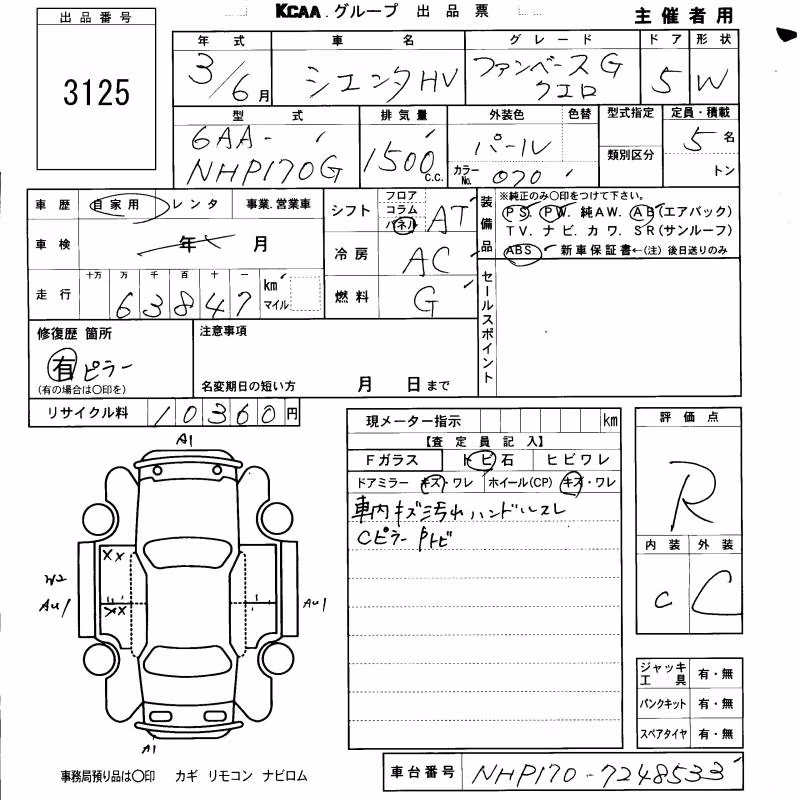 KCAA グループ 出品票
主催者用
出品番号
3125
年式 車名 グレード ドア 形状
3/6月 シエンタHV ファンベースG クエロ 5 W
型式 排気量 外装色 色替 型式指定 定員・積載
6AA-NHP170G 1500 c.c. パール 類別区分 5名
カラーNo. 070 トン
車歴 自家用 レンタ 事業.営業車
シフト フロア コラム パネル AT
装備品 ※純正のみ〇印をつけて下さい。
PS. PW. 純AW. AB(エアバック)
TV. ナビ. カワ. SR(サンルーフ)
ABS 新車保証書←(注) 後日送りのみ
車検 年 月
冷房 AC
走行 十万 万 千 百 十 一 km マイル
63847
燃料 G
セールスポイント
修復歴 箇所
有 ピラー
(有の場合は〇印を)
注意事項
名変期日の短い方 月 日まで
リサイクル料 10360円
現メーター指示 km
【査定員記入】
Fガラス トビ石 ヒビワレ
ドアミラー キズ・ワレ ホイール(CP) キズ・ワレ
車内キズ汚れ ハンドルスレ
Cピラー
評価点
R
内装 外装
C C
A1
XX
XX
W2
AU1
AU1
A1
ジャッキ工具 有・無
パンクキット 有・無
スペアタイヤ 有・無
事務局預り品は〇印 カギ リモコン ナビロム
車台番号 NHP170-7248533